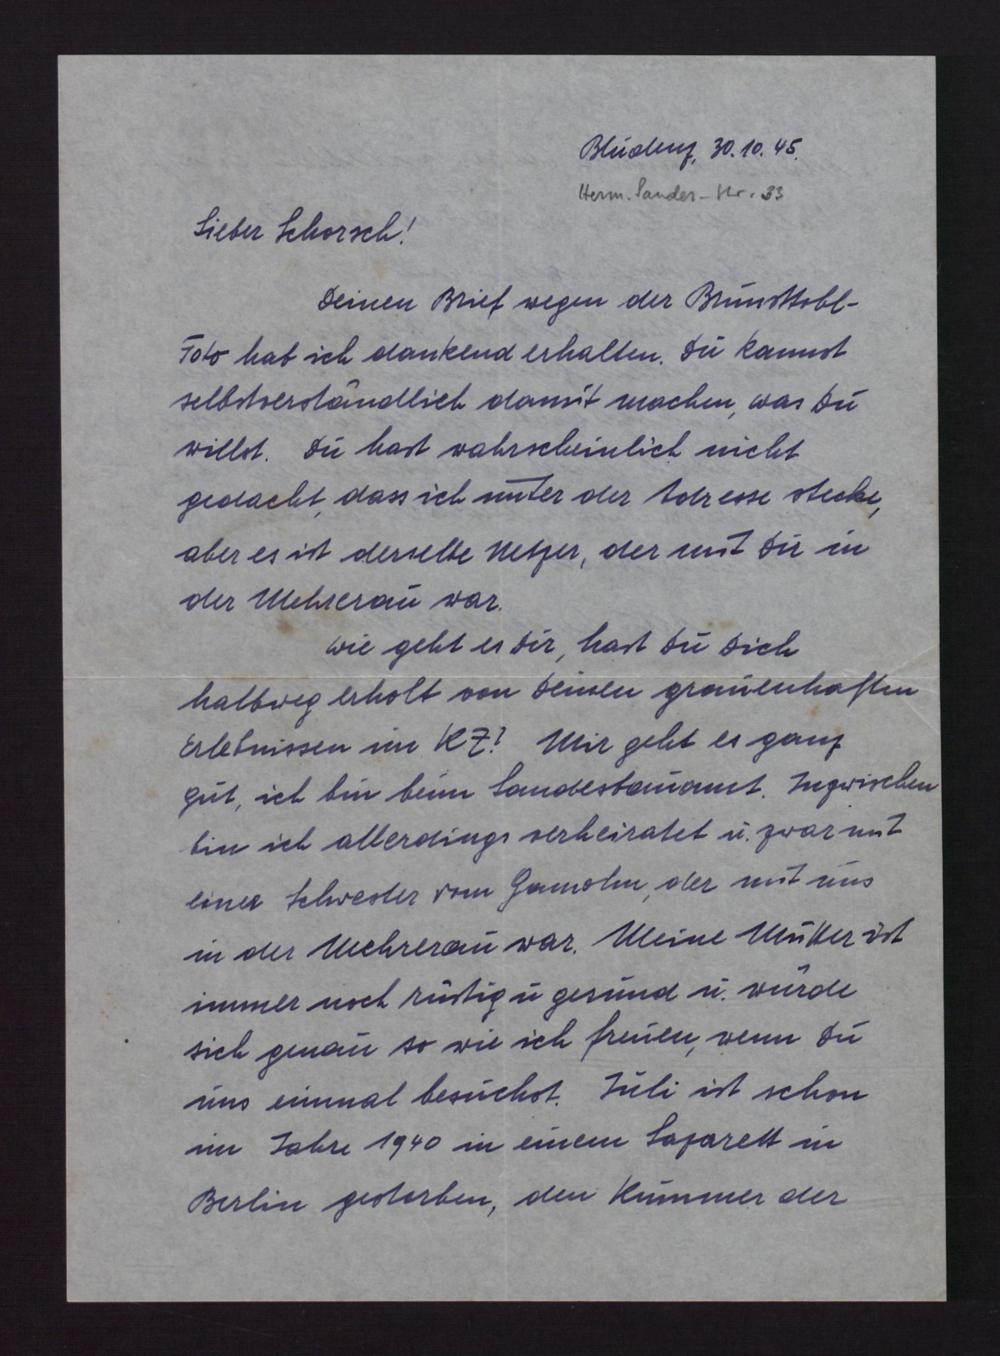 Bludenz, 30.10.45.
Herm. Sander-Str. 33
Lieber Schorsch!
Deinen Brief wegen der Brunsttobl-
Foto hab ich dankend erhalten. Du kannst
selbstverständlich damit machen, was Du
willst. Du hast wahrscheinlich nicht
gedacht, dass ich unter der Adresse stecke,
aber es ist derselbe Netzer, der mit Dir in
der Mehrerau war.
Wie geht es Dir, hast Du Dich
halbweg erholt von Deinen grauenhaften
Erlebnissen im KZ? Mir geht es ganz
gut, ich bin beim Landesbauamt. Inzwischen
bin ich allerdings verheiratet u. zwar mit
einer Schwester vom Gamohn, der mit uns
in der Mehrerau war. Meine Mutter ist
immer noch rüstig u gesund u. würde
sich genau so wie ich freuen, wenn Du
uns einmal besuchst. Juli ist schon
im Jahre 1940 in einem Lazarett in
Berlin gestorben, den Kummer der